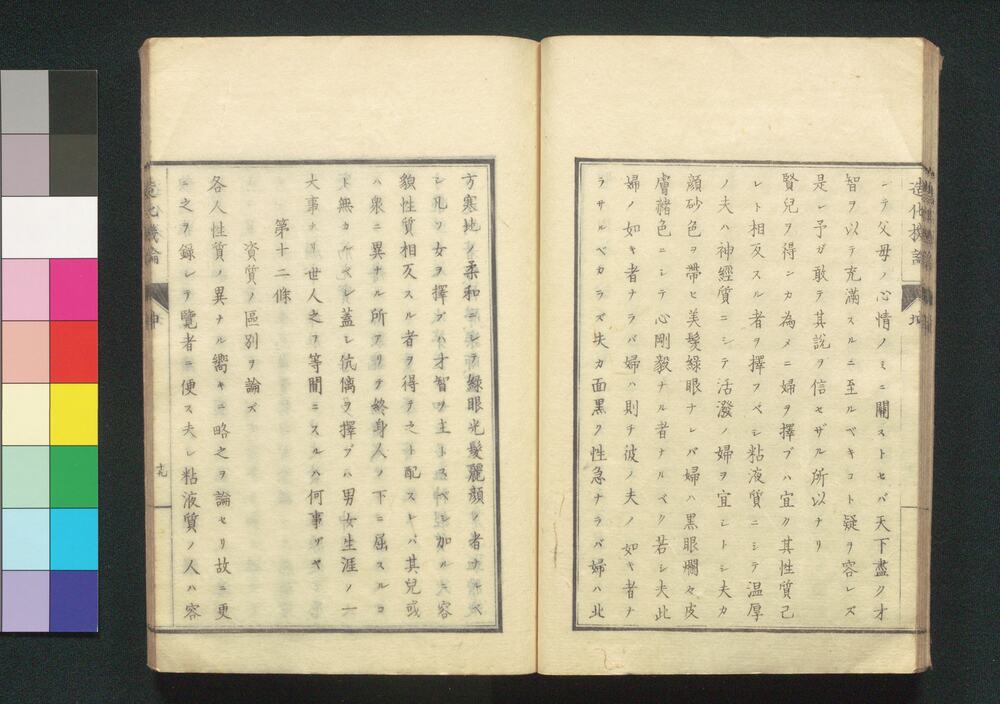 造化機論
シテ父母ノ心情ノミニ關ストセバ天下盡ク才
智ヲ以テ充滿スルニ至ルベキコト疑ヲ容レズ
是レ予ガ敢テ其説ヲ信セザル所以ナリ
賢兒ヲ得ンカ為メニ婦ヲ擇ブハ宜ク其性質己
レト相反スル者ヲ擇フベシ粘液質ニシテ温厚
ノ夫ハ神經質ニシテ活潑ノ婦ヲ宜シトシ夫カ
顔砂色ヲ帶ヒ美髮緑眼ナレバ婦ハ黒眼爛々皮
膚赭色ニシテ心剛毅ナル者ナルベク若シ夫此
婦ノ如キ者ナラバ婦ハ則チ彼ノ夫ノ如キ者ナ
ラサルベカラズ夫カ面黒ク性急ナラバ婦ハ北
方寒地ノ柔和ニシテ緑眼光髮麗顔ノ者ナルベ
シ凡ソ女ヲ擇ブハ才智ヲ主トスベシ加ルニ容
貌性質相反スル者ヲ得テ之ト配スレバ其兒或
ハ衆ニ異ナル所アリテ終身人ノ下ニ屈スルコ
ト無カルベシ蓋シ伉儷ヲ擇ブハ男女生涯ノ一
大事ナリ世人之ヲ等閒ニスルハ何事ゾヤ
第十二條
資質ノ區別ヲ論ズ
各人性質ノ異ナル嚮キニ略之ヲ論セリ故ニ更
ニ之ヲ録シテ覽者ニ便ス夫レ粘液質ノ人ハ容
造化機論
十九